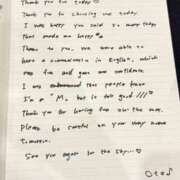 Thank you for today ♡
Thank you for choosing me today.
I was happy you said so many today
That made me happy
Thanks to you, we were able to
have a conversation in English, which
was fun and gave me confidence.
I was that people
I'm a "M, but is too good ////
Thank you for having fun the
Please be careful on your way home
tomorrow.
See you again for the ♡